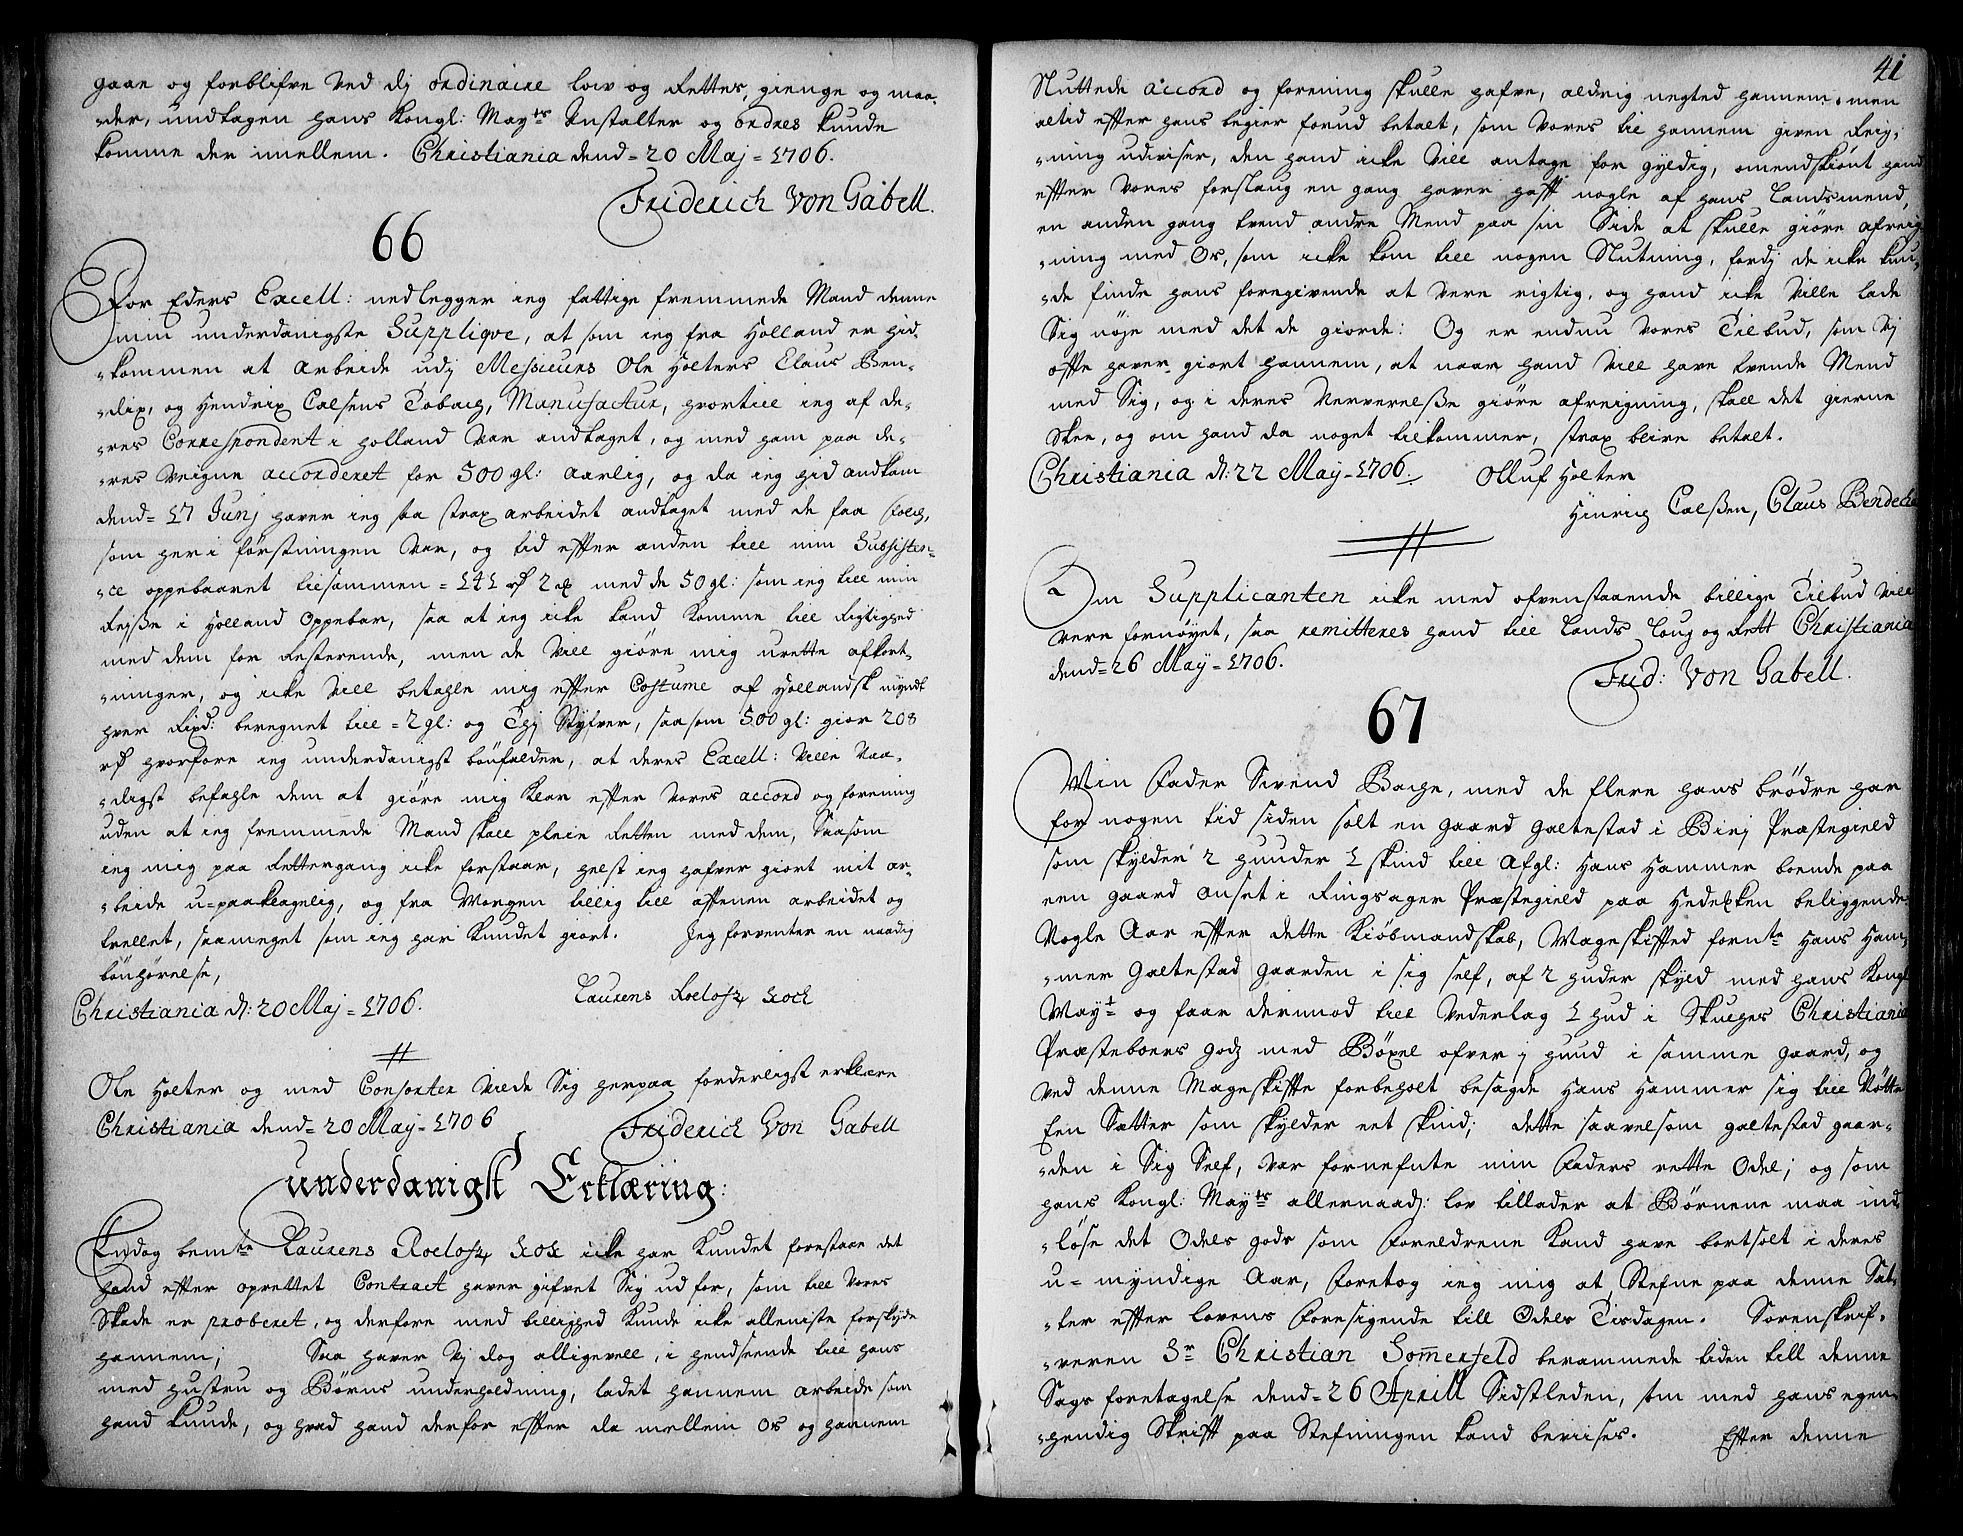 gaae og forblifve ved dj ordinaire low og Rettes, gienge og maa-
-der, undtagen hans Kongl: Mayts Anstalter og ordres kunde
komme der imellem. Christiania dend= 20 Maj = 1706.
Friderich Von Gabell.
66
For Eders Excell: nedlegger ieg fattige fremmede Mand denne
min underdanigste Supplique, at som ieg fra Holland er hid-
-kommen at arbeide udj Messieurs Ole Holters Claus Ben-
-dix, og Hendrix Calsens Tobach, Manufactur, hvortill ieg af de-
-res Correspondent i Holland var andtaget, og med ham paa de-
-res Veigne accorderet for 500 gl: aarlig, og da ieg hid andkom
dend= 17 Junj haver ieg saa strax arbeidet andtaget med de faa folch,
som her i förstningen var, og tid efter anden till min Subsisten-
-ce oppebaaret tilsammen = 141 rd 2 ort med de 50 gl: som ieg till min
Reyse i Holland oppebar, saa at ieg icke kand komme till Rigtighed
med dem for Resterende, men de vill giöre mig urette afkort-
-ninger, og icke vill betahle mig efter Costume af Hollandsk myndt
hver Rixd: beregnet till = 2 gl: og Thj Styfver, saasom 500 gl: giör 208
rd hvorfore ieg underdanigst bönfalder, at deres Excell: ville naa-
-digst befahle dem at giöre mig klar efter vores accord og forening
uden at ieg fremmede Mand skall pleie Retten med dem, saasom
ieg mig paa Rettergang icke forstaar, helst ieg hafver giort mit ar-
-beide u=paaklagelig, og fra Morgen tillig till afftenen arbeidet og
trellet, saameget som ieg har kundet giort. Jeg forventer en naadig
bönhörelse,
Christiania d: 20 Maj = 1706. Laurens Roelofz Kock
Ole Holter og med Consorter vilde Sig herpaa forderligst erklære
Christiania dend= 20 May = 1706 Friderich Von Gabell
underdanigst Erklæring:
Endog bemte Laurens Roelofz Kok icke har kundet forestaae det
hand efter oprettet Contract haver gifvet Sig ud for, som till vores
Skade er proberet, og derfore med billighed kunde icke alleniste forskyde
hannem; Saa haver Vj dog alligevell, i henseende till hans
med Hustru og Börns underholdning, ladet hannem arbeide som
hand kunde, og hvad hand derfor efter da mellem os og hannem
41
Sluttede accord og forening skulle hafve, aldrig negted hannem, men
altid efter hans begier forud betalt, som vores til hannem given Reig-
-ning udviser, den hand icke vill antage for gyldig, omendskiönt hand
efter vores forslaug en gang haver hafft nogle af hans Landsmend,
en anden gang tvend andre Mend paa sin Side at skulle giöre afreig-
-ning med os, som icke kom till nogen Slutning, fordj de icke kun-
-de finde hans foregivende at vere rigtig, og hand icke ville lade
Sig nöje med det de giorde: Og er endnu vores Tilbud, som Vj
offte haver giort hannem, at naar hand vill have tvende Mend
med Sig, og i deres Nerverelße giöre afreigning, skall det gierne
skee, og om hand da noget tilkommer, strax blive betalt.
Christiania d: 22 May = 1706. Olluf Holter
Hinrich Calßen, Claus Bendeke
Om Supplicanten icke med ofvenstaaende billige Tilbud vill
vere fornöyet, saa remitteres hand till Lands Loug og Rett Christiania
dend= 26 May = 1706. Frid: Von Gabell.
67
Min Fader Sivend Bache, med de flere hans brödre har
for nogen tid siden solt en gaard Galtestad i Birj Præstegield
som skylder 2 huuder 1 skind till Afgl: Hans Hammer boende paa
een gaard Onset i Ringsager Præstegield paa Hedemken beliggende.
Nogle Aar efter dette Kiöbmandskab, Mageskiffted fornte Hans Ham-
-mer Galtestad gaarden i sig self, af 2 huder skyld med hans Kongl
Mayt og faar dermod till Vederlag 1 hud i Skulhes Christiania
Præsteboers godz med Böxel ofver j huud i samme gaard, og
ved denne Mageskiffte forbeholt besagde Hans Hammer sig till Nötte
Een Sætter som skylder eet skind; dette saavelsom galtestad gaar-
-den i Sig Self, var fornefnte min Faders rette Odel; og som
hans Kongl: Mayts allernaad: lov tillader at Börnene maa ind-
-löse det Odels gods som Foreldrene kand have bortsolt i deres
u=myndige Aar, Foretog ieg mig at Stefne paa denne Sæt-
-ter efter lovens Foresigende till Odels Tisdagen. Sorenskrif-
-veren Sr Christian Somerfeld berammede tiden till denne
Sags foretagelse dend= 26 Aprill Sidstleden, som med hans egen-
-hendig Skrifft paa Stefningen kand beviises. Efter denne